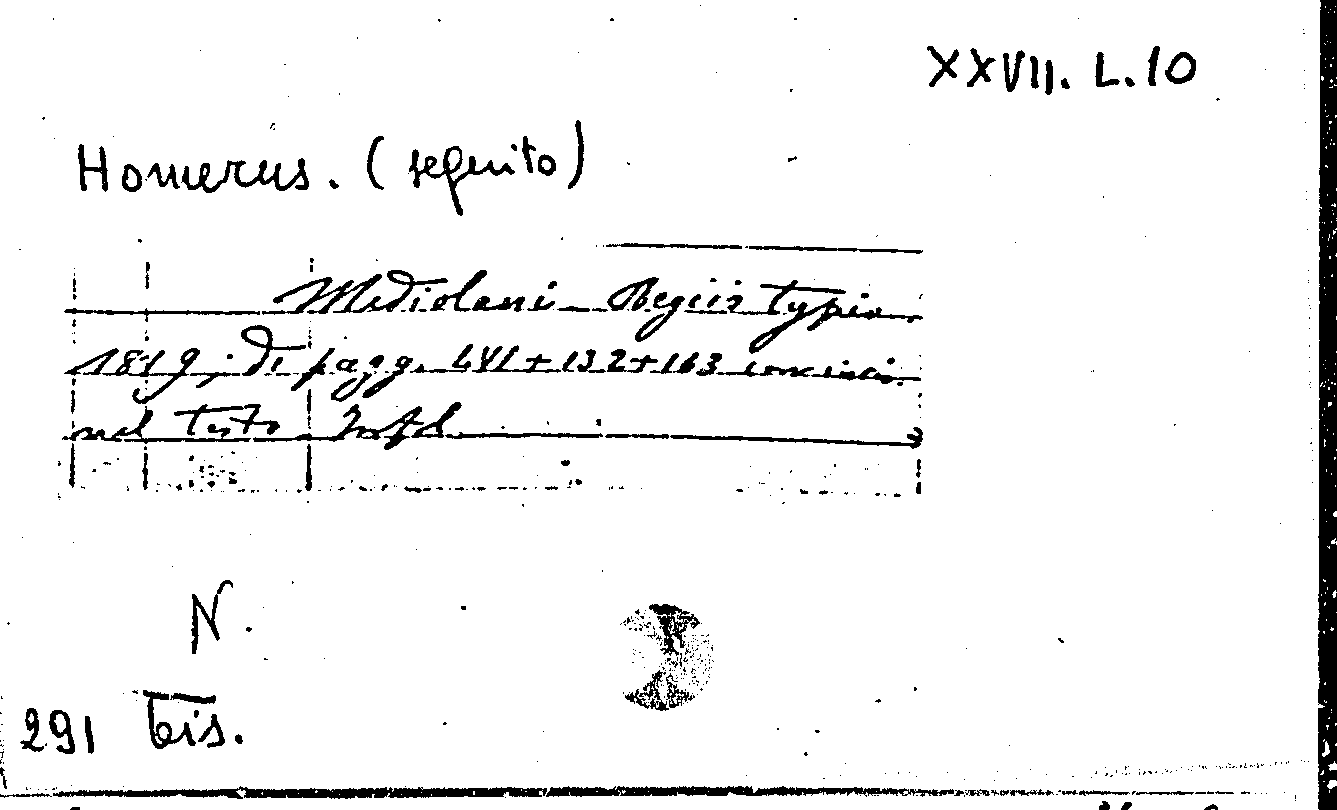 XXVII. L. 10
Homerus. (seguito)
Mediolani Regiis typis.
1819; di pagg. LVI + 132 + 163 con incis.
nel testo In fol.
N.
291 bis.